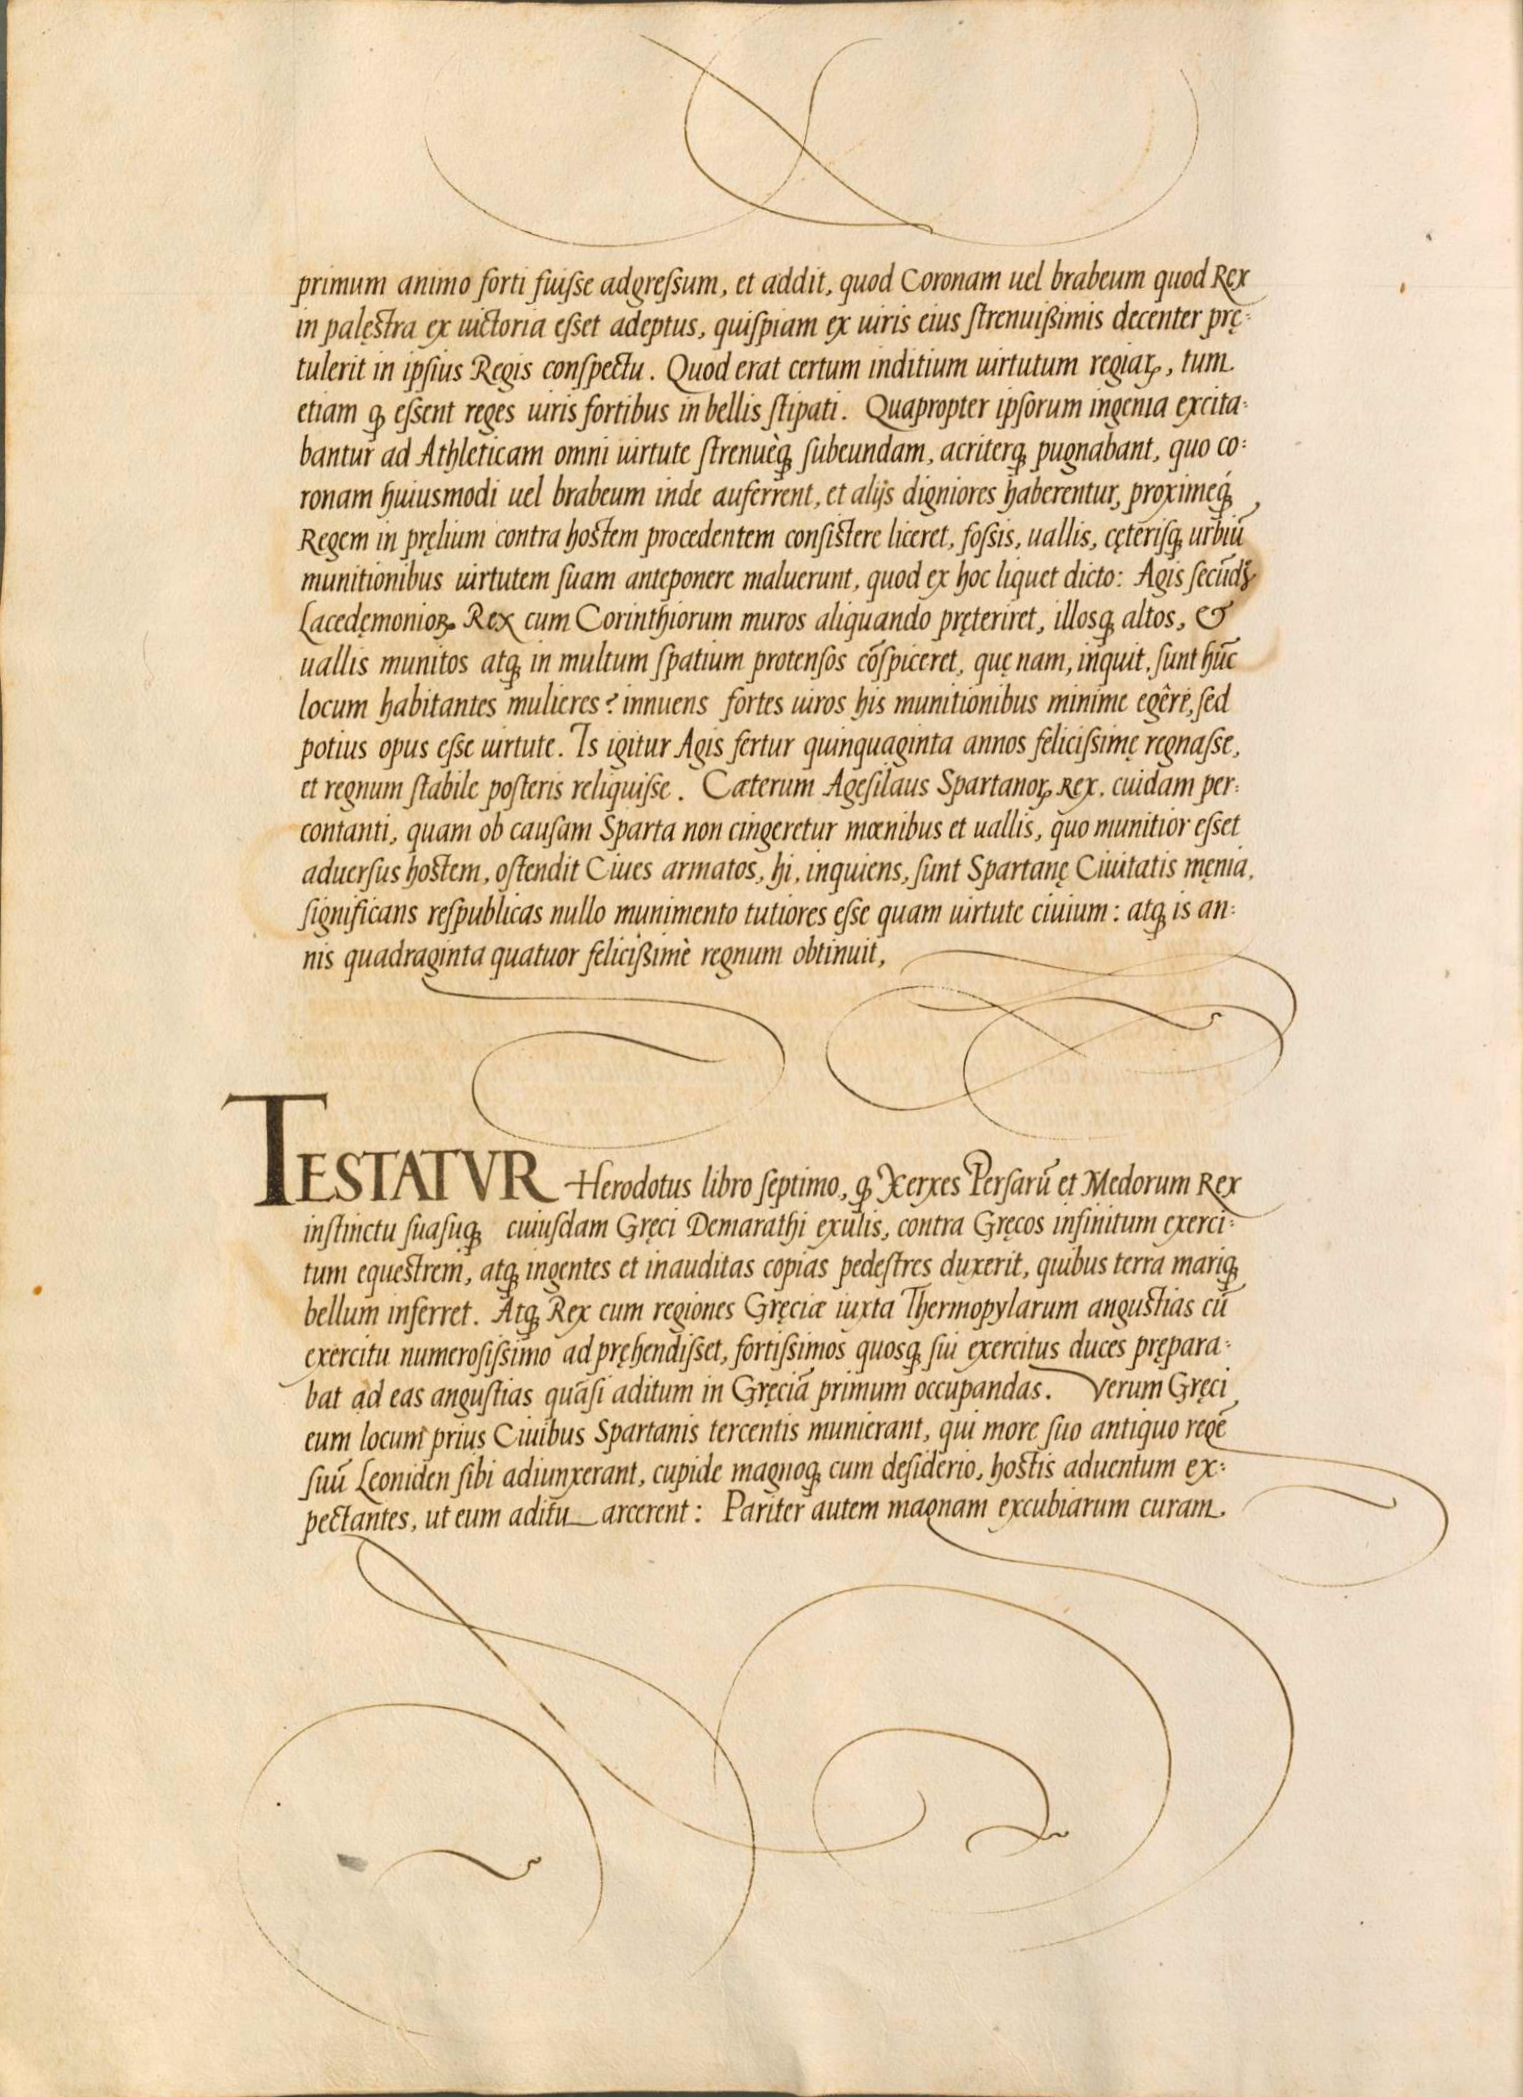 primum animo forti fuiſse adgreſsum, et addit, quod Coronam uel brabeum quod Rex
in palęstra ex uictoria eſset adeptus, quiſpiam ex uiris eius ſtrenuißimis decenter prę-
tulerit in ipſius Regis conſpectu. Quod erat certum inditium uirtutum regiaꝝ, tum
etiam ꝙ eſsent reges uiris fortibus in bellis ſtipati. Quapropter ipſorum ingenia excita-
bantur ad Athleticam omni uirtute ſtrenuèqꝫ ſubeundam, acriterqꝫ pugnabant, quo co-
ronam huiusmodi uel brabeum inde auferrent, et alijs digniores haberentur, proximeqꝫ́
Regem in pręlium contra hostem procedentem conſistere liceret, foſsis, uallis, cęteriſqꝫ urbiū
munitionibus uirtutem ſuam anteponere maluerunt, quod ex hoc liquet dicto: Agis ſecūdꝰ
Lacedęmonioꝝ Rex cum Corinthiorum muros aliquando pręteriret, illosqꝫ altos, &
uallis munitos atqꝫ in multum ſpatium protenſos cōſpiceret, quę nam, inquit, ſunt hūc
locum habitantes mulieres? innuens fortes uiros his munitionibus minime egêre, ſed
potius opus eſse uirtute. Is igitur Agis fertur quinquaginta annos feliciſsimę regnaſse,
et regnum ſtabile poſteris reliquiſse. Cæterum Ageſilaus Spartanoꝝ Rex, cuidam per-
contanti, quam ob cauſam Sparta non cingeretur mœnibus et uallis, quo munitior eſset
aduerſus hostem, oſtendit Ciues armatos, hi, inquiens, ſunt Spartanę Ciuitatis męnia,
ſignificans reſpublicas nullo munimento tutiores eſse quam uirtute ciuium: atqꝫ is an-
nis quadraginta quatuor felicißimè regnum obtinuit,
TESTATVR Herodotus libro ſeptimo, ꝙ Xerxes Perſarū et Medorum Rex
inſtinctu ſuaſuqꝫ cuiuſdam Gręci Demarathi exulis, contra Gręcos infinitum exerci-
tum equestrem, atqꝫ ingentes et inauditas copias pedeſtres duxerit, quibus terra mariqꝫ
bellum inferret. Atqꝫ Rex cum regiones Gręciæ iuxta Thermopylarum angustias cū
exercitu numeroſiſsimo adpręhendiſset, fortiſsimos quosqꝫ ſui exercitus duces prępara-
bat ad eas anguſtias quaſi aditum in Gręciā primum occupandas. Verum Gręci
eum locum prius Ciuibus Spartanis tercentis munierant, qui more ſuo antiquo regē
ſuū Leoniden ſibi adiunxerant, cupide magnoqꝫ cum deſiderio, hostis aduentum ex-
pectantes, ut eum aditu arcerent: Pariter autem magnam excubiarum curam